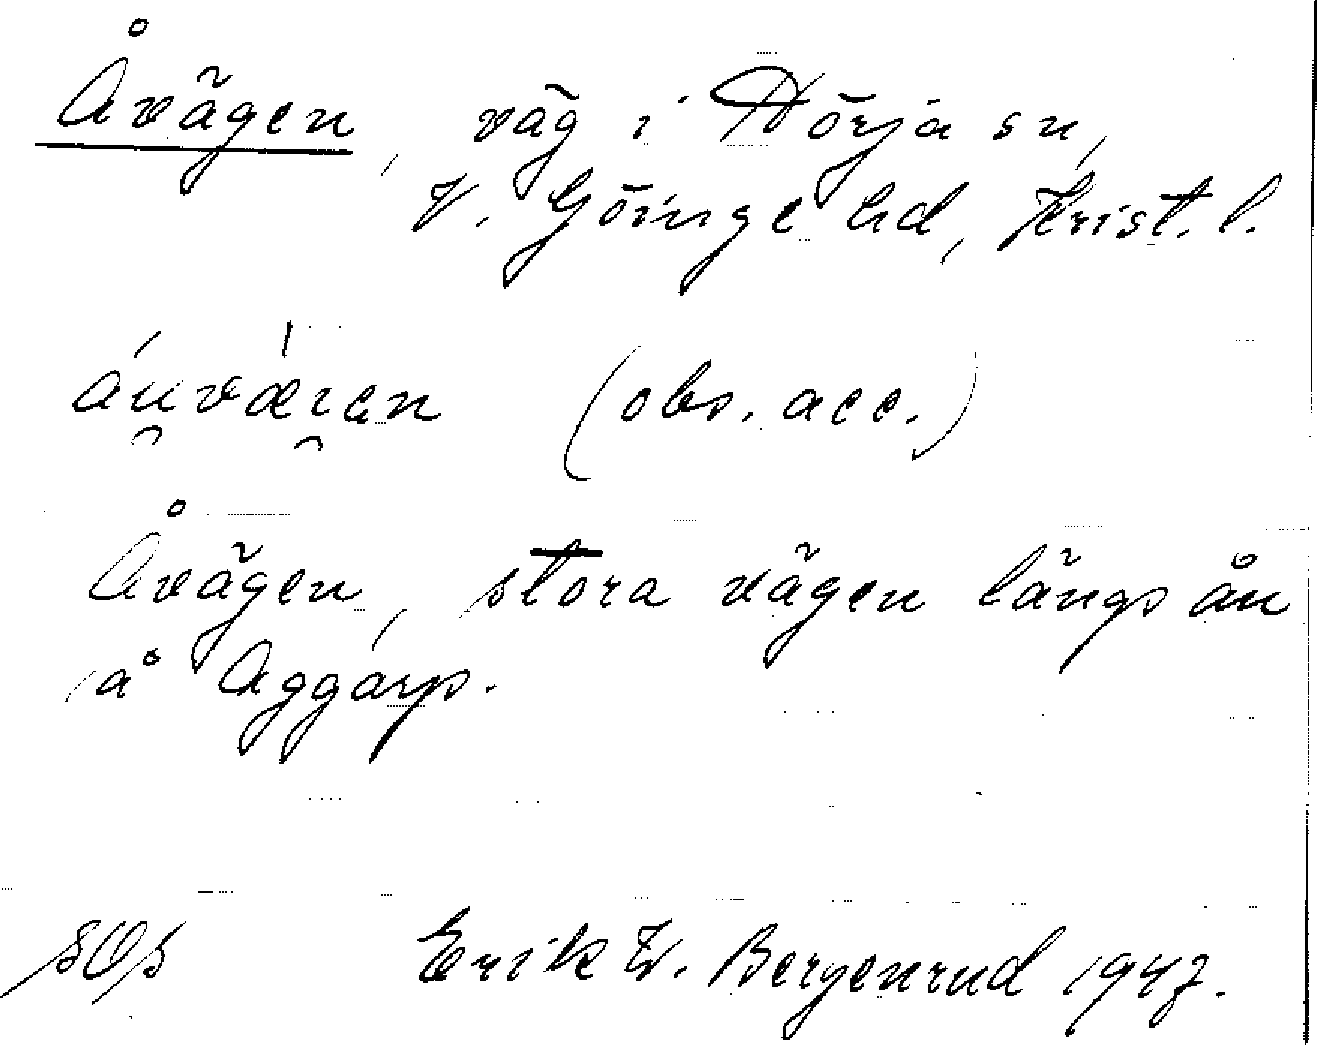 Åvägen, väg i Hörja sn,
V. Göinge hd, Krist. l.
áu̯væ̍i̯en (obs. acc.)
Åvägen, stora vägen längs ån
å Aggarp.
SOS Erik W. Bergenrud 1947.